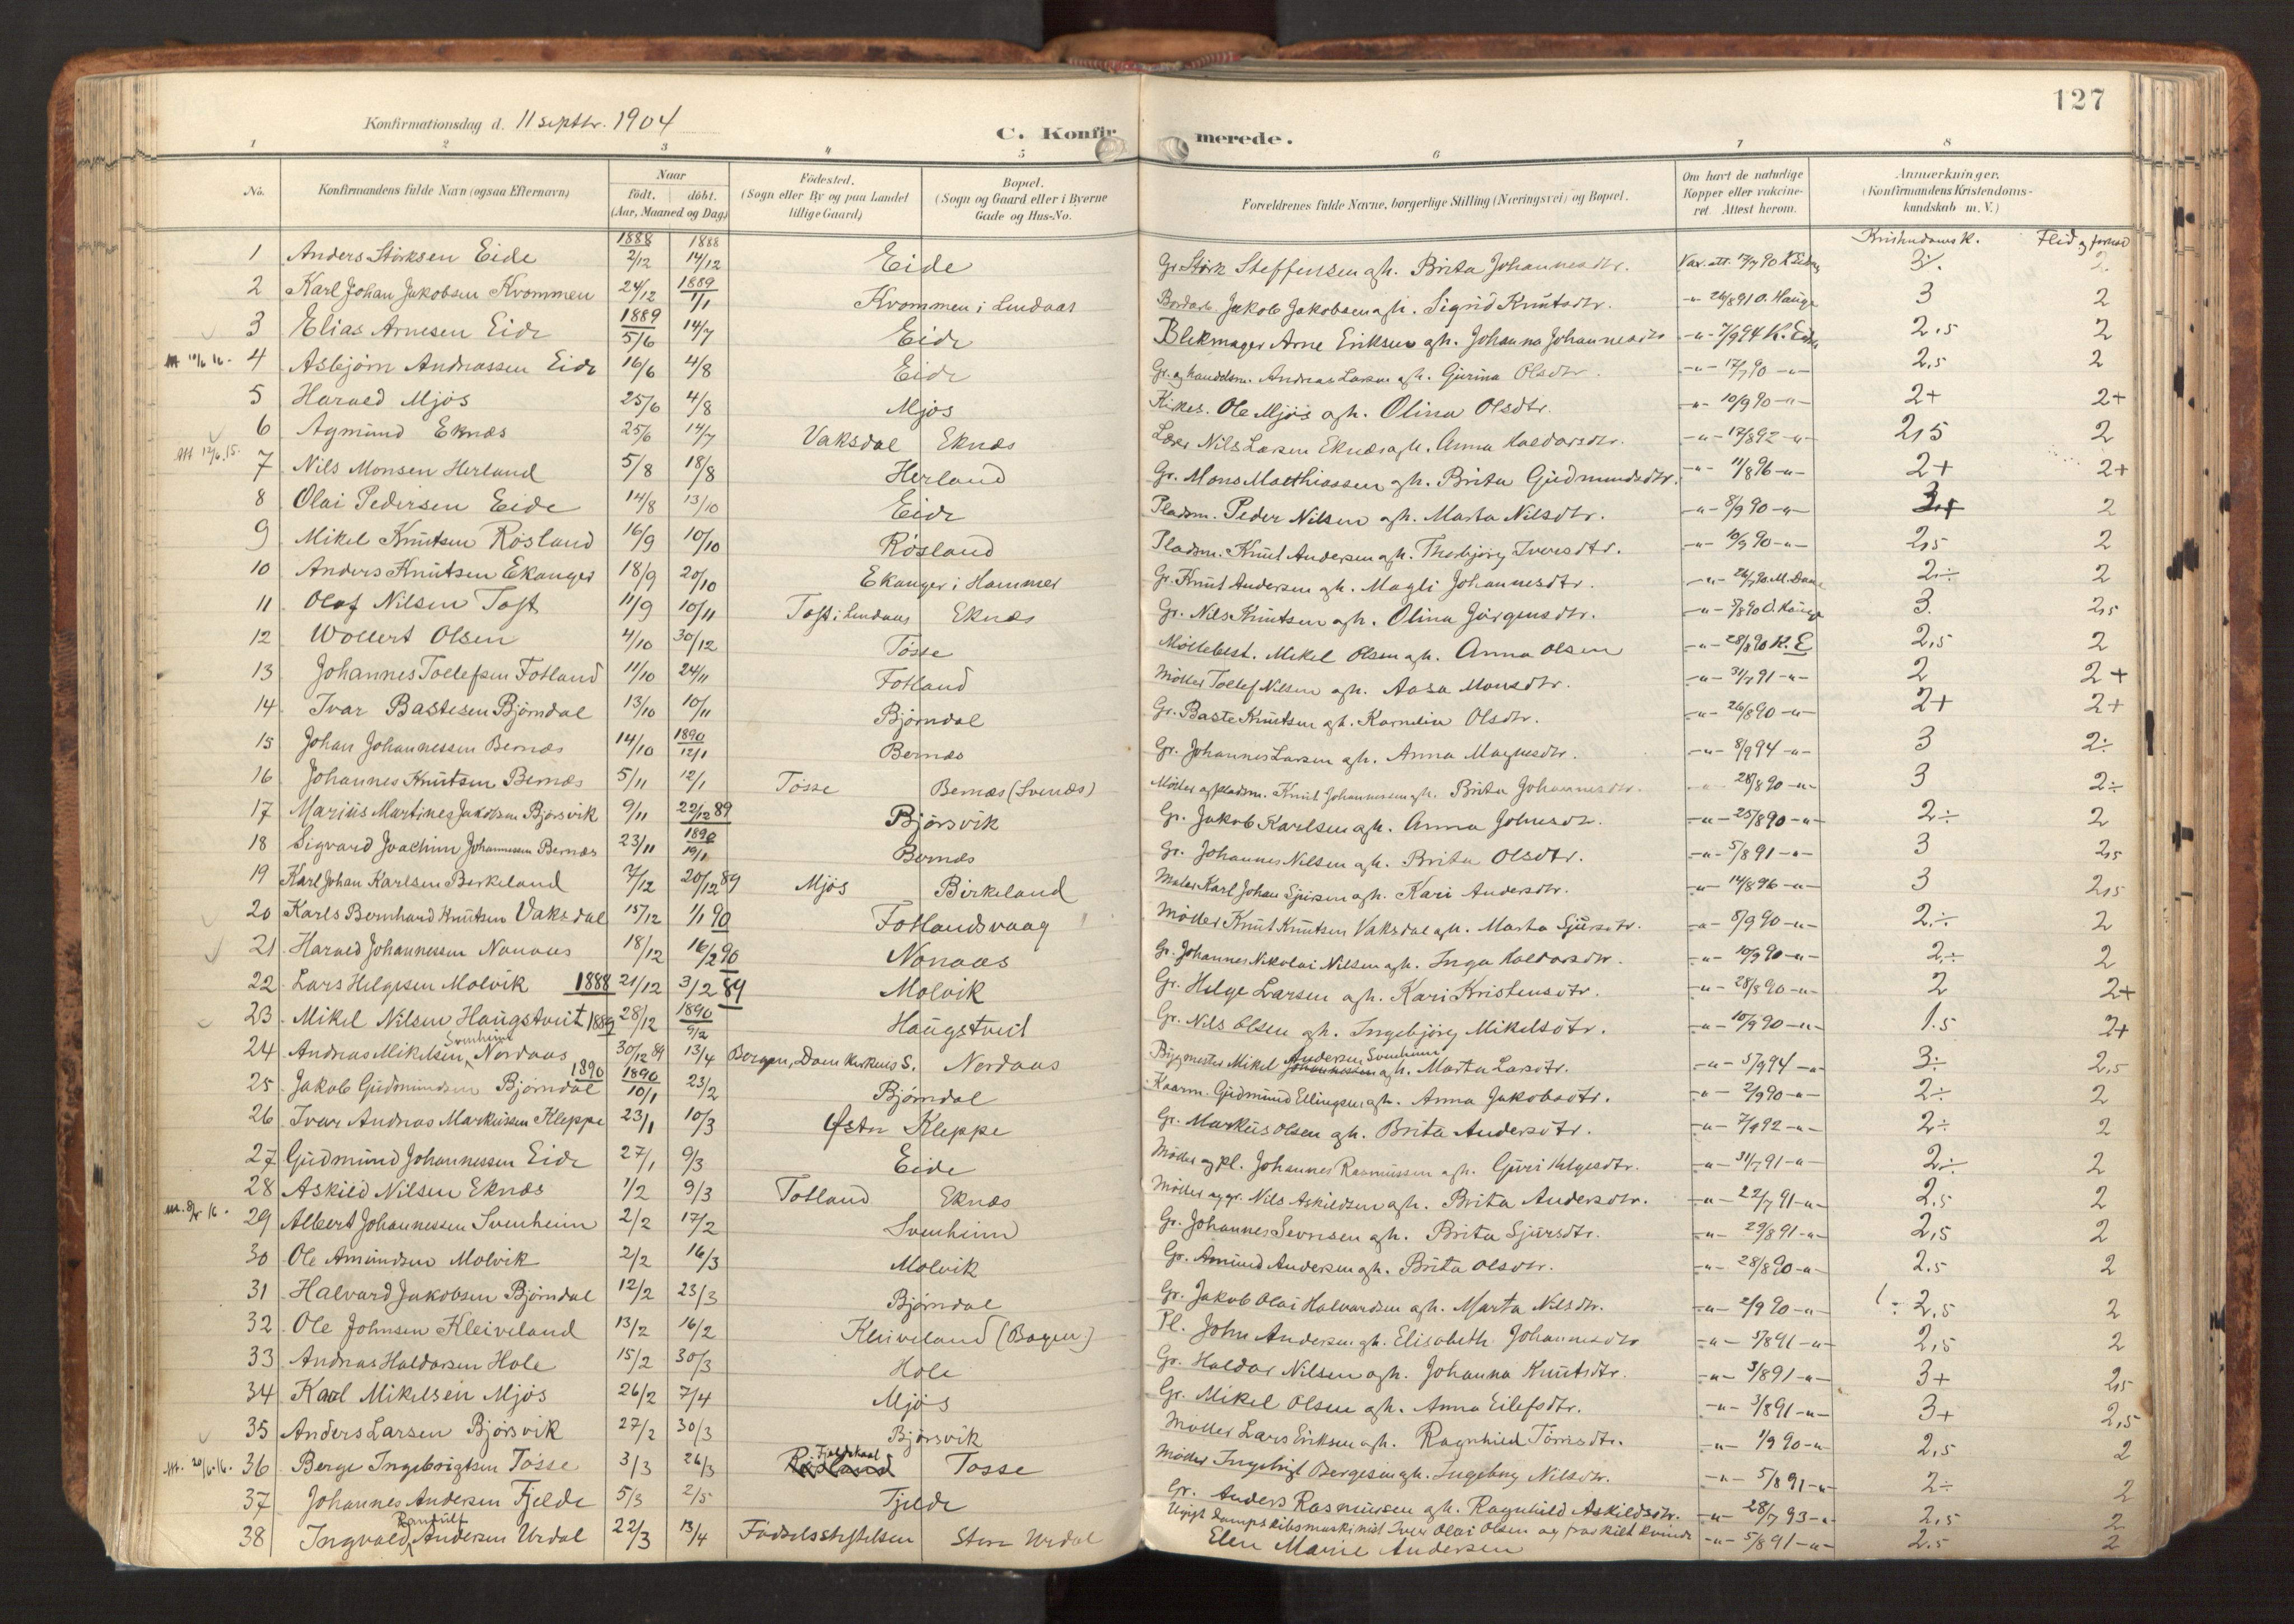 127
Konfirmationsdag d. 11 septbr. 1904
C. Konfirmerede.
1 2 3 4 5 6 7 8
No. Konfirmandens fulde Navn (ogsaa Efternavn) Naar födt. döbt. (Aar, Maaned og Dag) Födested. (Sogn eller By og paa Landet tillige Gaard) Bopæl. (Sogn og Gaard eller i Byerne Gade og Hus-No. Forældrenes fulde Navne, borgerlige Stilling (Næringsvei) og Bopæl. Om havt de naturlige Kopper eller vaksineret. Attest herom. Anmærkninger. (Konfirmandens Kristendomskundskab m. V.)
Kristendomsk. Flid og
1 Anders Störksen Eide 1888 2/12 1888 14/12 Eide Gr. Störk Steffensen o/h. Brita Johannesdtr. Vax. att. 17/7 90 3
2 Karl Johan Jakobsen Kvommen 24/12 1889 1/1 Kvommen i Lindaas Jakob Jakobsen o/h. Sigrid Knutsdtr. -"- 26/8 91 O. Hauge 3 2
3 Elias Arnesen Eide 1889 5/6 14/7 Eide Blekmager Arne Eriksen o/h. Johanna Johannesdtr -"- 7/9 94 2,5 2
4 Asbjörn Andreassen Eide 16/6 4/8 Eide Gr. og handelsm. Andreas Larsen o/h. Gurina Olsdtr. -"- 17/7 90 -"- 2,5 2
5 Harald Mjös 25/6 4/8 Mjös Kirkes. Ole Mjös o/h. Olina Olsdtr. -"- 10/9 90 -"- 2+ 2+
6 Agmund Eknæs 25/6 14/7 Vaksdal Eknæs Nils Larsen Eknæs o/h. Anna Haldorsdtr. -"- 17/8 92 -"- 2,5 2
7 Nils Monsen Herland 5/8 18/8 Herland Gr. Mons Mathiassen o/h. Brita Gudmundsdtr. -"- 11/8 96 -"- 2+ 2+
8 Olai Pedersen Eide 14/8 13/10 Eide Pladsm. Peder Nilsen o/h. Marta Nilsdtr. -"- 8/9 90 -"- 2
9 Mikel Knutsen Rösland 16/9 10/10 Rösland Pladsm. Knut Andersen o/h. Thorbjörg Iversdtr. -"- 10/9 90 -"- 2,5 2
10 Anders Knutsen Ekanger 18/9 20/10 Ekanger i Hammer Gr. Knut Andersen o/h. Magli Johannesdtr. 2÷ 2
11 Olaf Nilsen Toft 11/9 10/11 Toft i Lindaas Eknæs Gr. Nils Knutsen o/h. Olina Jörgensdtr. 3. 2,5
12 Wollert Olsen 4/10 30/12 Tösse Möllebest. Mikel Olsen o/h. Anna Olsen -"- 28/8 90 K. E 2,5 2
13 Johannes Tollefsen Fotland 11/10 24/11 Fotland Möller Tollef Nilsen o/h. Aasa Monsdtr. -"- 31/7 91 -"- 2 2+
14 Ivar Bastesen Björndal 13/10 10/11 Björndal Gr. Baste Knutsen o/h. Karnelia Olsdtr. -"- 26/8 90 -"- 2+ 2+
15 Johan Johannessen Bernæs 14/10 1890 12/1 Bernæs Gr. Johannes Larsen o/h. Anna Magnesdtr. -"- 8/9 94 -"- 3 2÷
16 Johannes Knutsen Bernæs 5/11 12/1 Tösse Bernæs (Svenæs) Möller og pladsm. Knut Johannessen o/h. Brita Johannesdtr. 28/8 90 -"- 3 2÷
17 Marius Martines Jakobsen Björsvik 9/11 22/12 89 Björsvik Gr. Jakob Karlsen o/h. Anna Johnsdtr. -"- 25/8 90 -"- 2÷ 2
18 Sigvard Joachim Johannessen Bernæs 23/11 1890 19/1 Bernæs Gr. Johannes Nilsen o/h. Brita Olsdtr. -"- 5/8 91 -"- 3 2,5
19 Karl Johan Karlsen Birkeland 7/12 20/12 89 Mjös Birkeland Maler Karl Johan Sjursen o/h. Kari Andersdtr. -"- 14/8 96 -"- 3 2,5
20 Karls Bernhard Knutsen Vaksdal 15/12 1/1 90 Fotlandsvaag Möller Knut Knutsen Vaksdal o/h. Marta Sjursdtr. -"- 8/9 90 -"- 2÷ 2
21 Harald Johannessen Nonaas 18/12 16/2 90 Nonaas Gr. Johannes Nikolai Nilsen o/h. Inga Haldorsdtr. -"- 10/9 90 -"- 2÷ 2
22 Lars Helgesen Molvik 1888 21/12 3/2 89 Molvik Gr. Helge Larsen o/h. Kari Kristensdtr. -"- 28/8 90 -"- 2 2+
23 Mikel Nilsen Haugstveit 1889 28/12 1890 9/2 Haugstveit Gr. Nils Olsen o/h. Ingebjörg Mikelsdtr. -"- 10/9 90 -"- 1.5 2+
24 Andreas Mikelsen Svenheim Nordaas 30/12 89 13/4 Bergen, Domkirkens S. Nordaas Bygmester Mikel Johannessen Andersen Svenheim o/h. Marta Larsdtr. -"- 5/9 94 -"- 3÷ 2,5
25 Jakob Gudmundsen Björndal 1890 1890 10/1 23/2 Björndal Kaarm. Gudmund Ellingsen o/h. Anna Jakobsdtr. -"- 2/9 90 -"- 2÷ 2
26 Ivar Andreas Markussen Kleppe 23/1 10/3 Kleppe Gr. Markus Olsen o/h. Brita Andersdtr. -"- 7/9 92 -"- 2÷ 2
27 Gudmund Johannessen Eide 27/1 9/3 Eide Möller og pl. Johannes Rasmussen o/h. Guri Helgesdtr. -"- 31/7 91 -"- 2÷ 2
28 Askild Nilsen Eknæs 1/2 9/3 Totland Eknæs Möller og gr. Nils Askildsen o/h. Brita Andersdtr. -"- 22/7 91 -"- 2,5 2
29 Albert Johannessen Svenheim 2/2 17/2 Svenheim Gr. Johannes Sevrsen o/h. Brita Sjursdtr. -"- 29/8 91 -"- 2,5 2
30 Ole Amundsen Molvik 2/2 16/3 Molvik Gr. Amund Andersen o/h. Brita Olsdtr. -"- 28/8 90 -"- 2.5 2
31 Halvard Jakobsen Björndal 12/2 23/3 Björndal Gr. Jakob Olai Halvardsen o/h. Marta Nilsdtr. -"- 2/9 90 -"- 2,5 2
32 Ole Johnsen Kleiveland 13/2 16/2 Kleiveland (Bogen) Pl. John Andersen o/h. Elisabeth Johannesdtr -"- 5/8 91 -"- 2,5 2
33 Andreas Haldorsen Hole 15/2 30/3 Hole Gr. Haldor Nilsen o/h. Johanna Knutsdtr. -"- 3/8 91 -"- 3+ 2,5
34 Karl Mikelsen Mjös 26/2 7/4 Mjös Gr. Mikel Olsen o/h. Anna Eilefsdtr. -"- 3/8 91 -"- 3+ 2,5
35 Anders Larsen Björsvik 27/2 30/3 Björsvik Möller Lars Eriksen o/h. Ragnhild Tömsdtr. -"- 1/9 90 -"- 2,5 2
36 Berge Ingebrigtsen Tösse 3/3 26/3 Tösse Möller Ingebrigt Bergesen o/h. Ingeborg Nilsdtr. -"- 5/8 91 -"- 2÷ 2
37 Johannes Andersen Fjelde 5/3 2/5 Fjelde Gr. Anders Rasmussen o/h. Ragnhild Askildsdtr. -"- 28/7 93 -"- 2,5 2
38 Ingvald Randulf Andersen Urdal 22/3 13/4 Födselsstiftelsen Store Urdal Ugift Dampskibsmaskinist Iver Olai Olsen og fraskilt kvinde -"- 5/8 91 -"- 2.5 2
Elen Marie Andersen